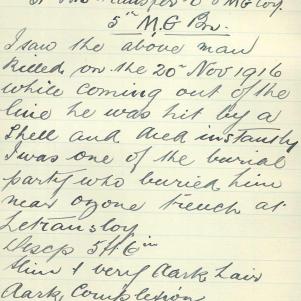 5th M.G Bn.
I saw the above man
killed on the 20th Nov 1916
while coming out of the
line he was hit by a
Shell and died instantly
I was one of the burial
party who buried him
near ozone trench at
Letransloy
Discp 5ft 6in
Slim & very dark hair
dark Complexion